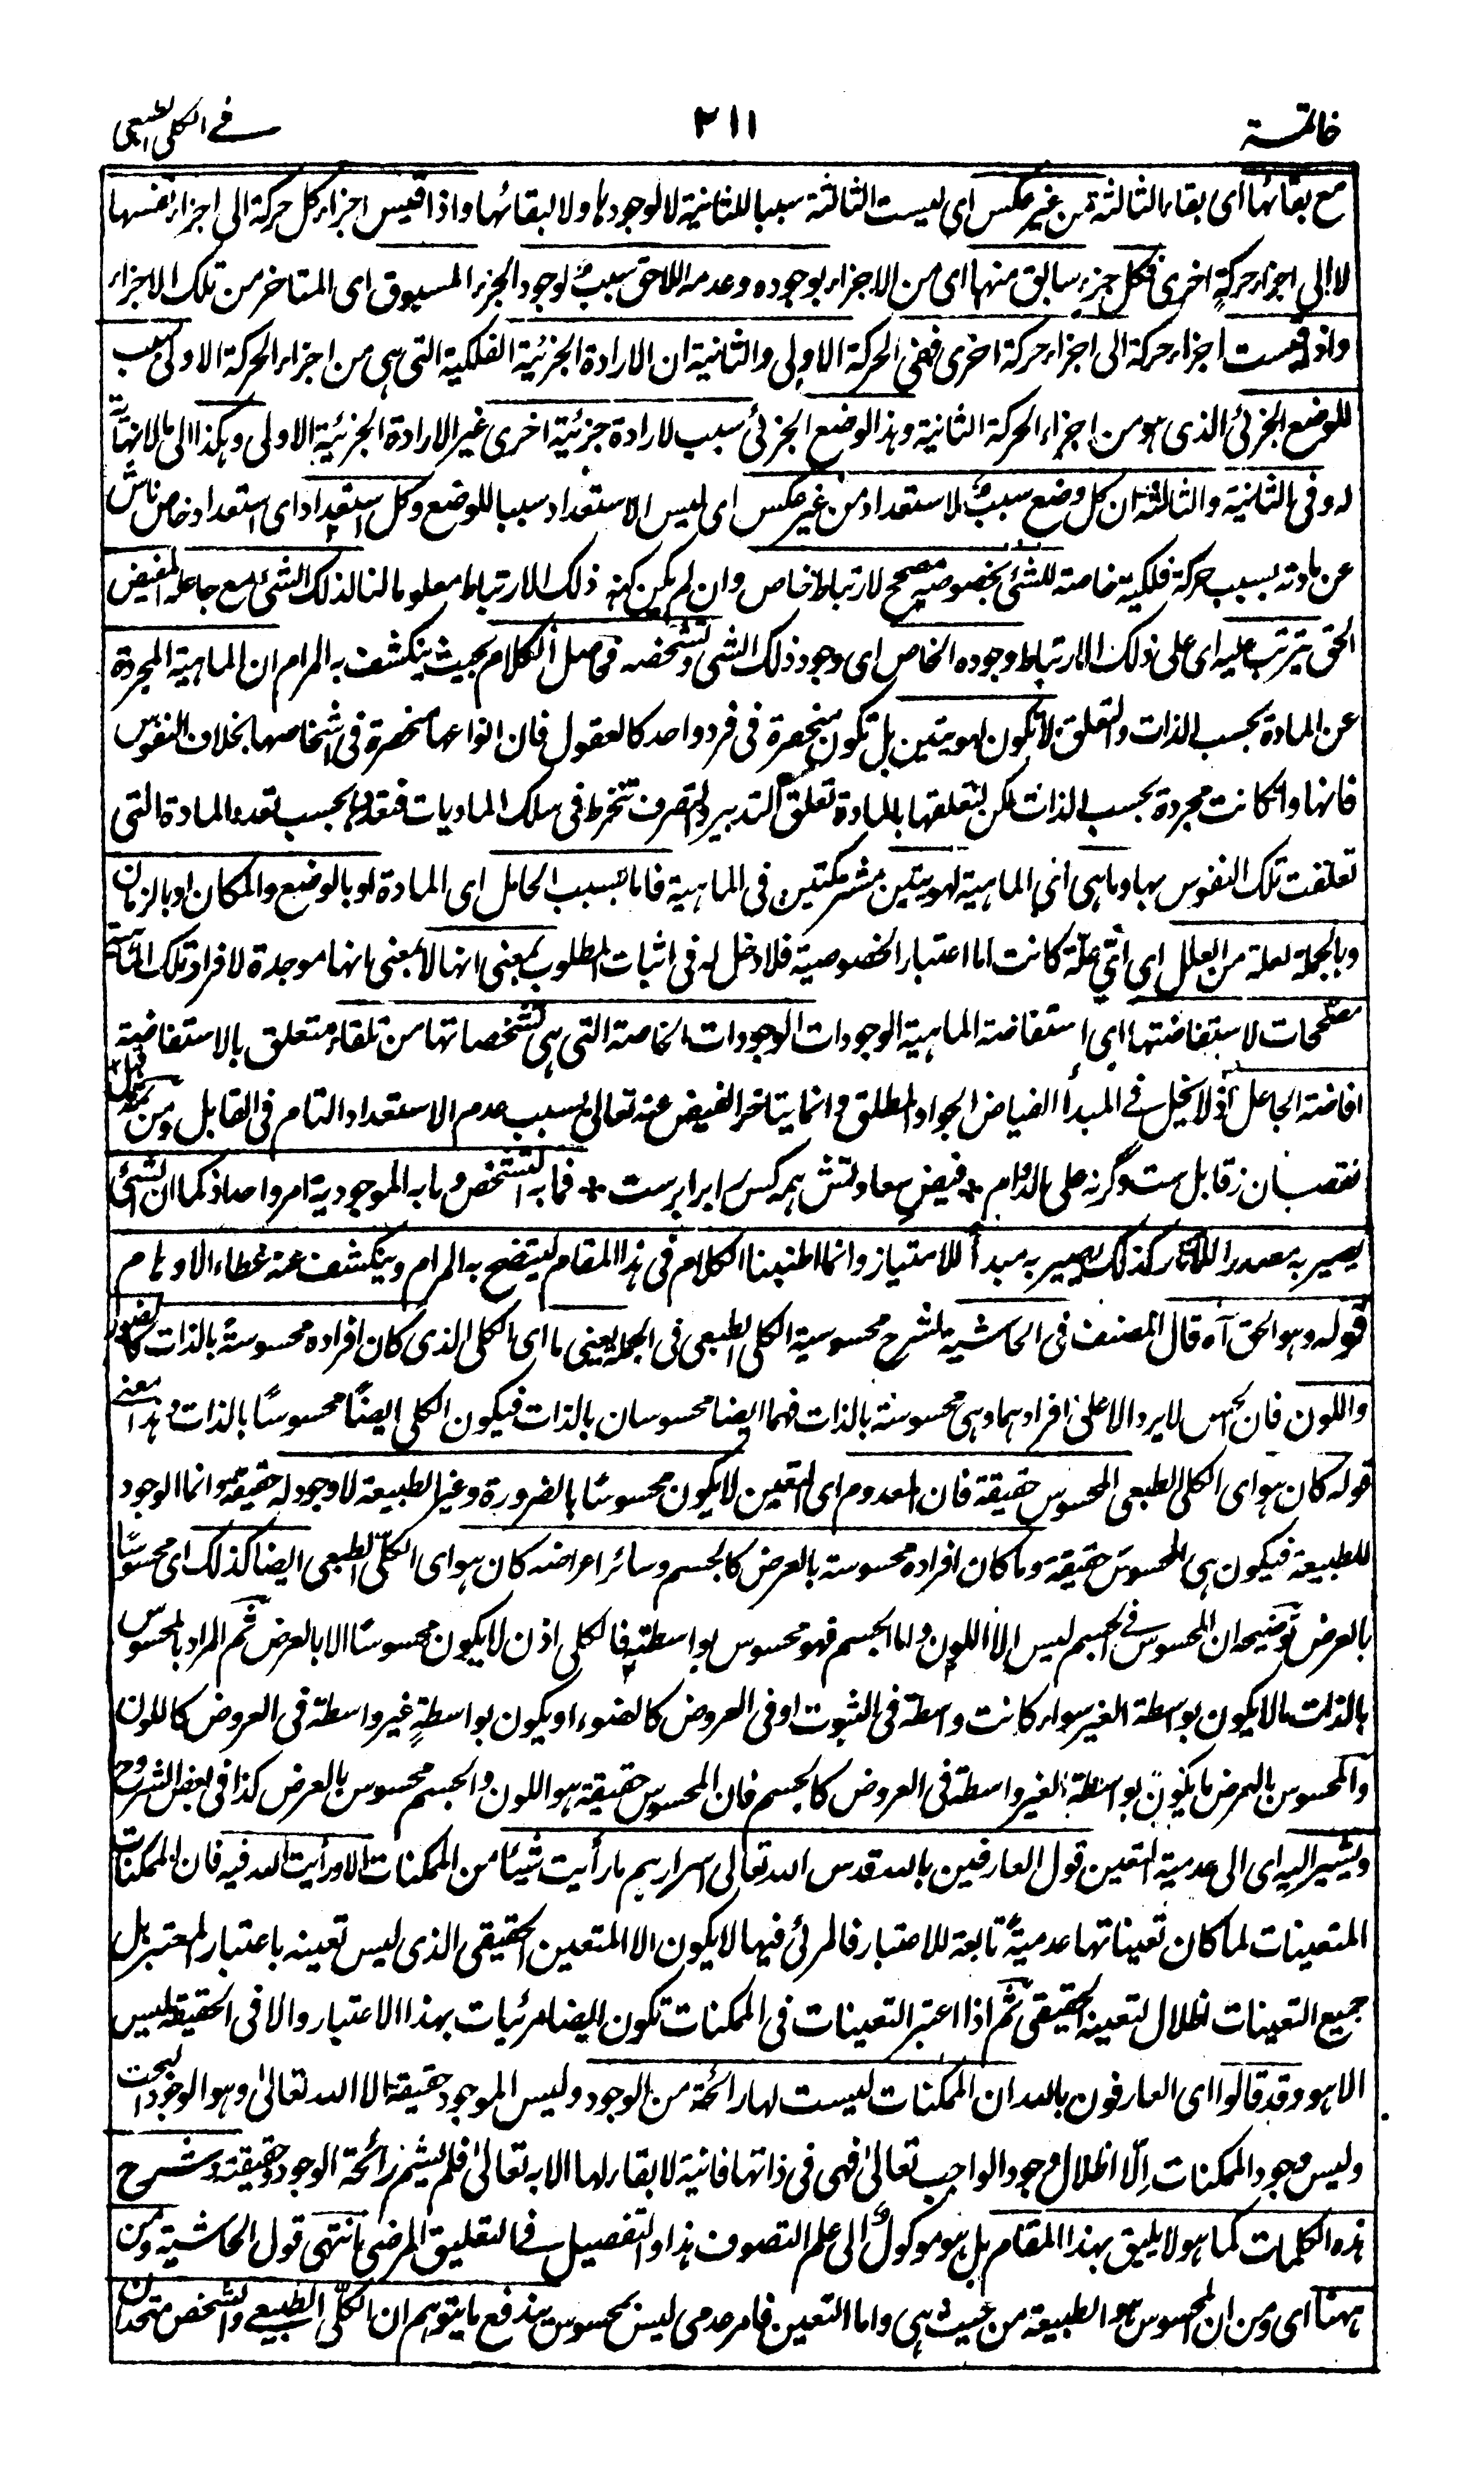 خاتمة
٢١١
في الكلي الطبعي
مع بقائها اى بقاء الثالثة من غير عكس اى ليست الثالثة سببا للثانية لا لوجودها ولا لبقائها واذا قيس اجزاء كل حركة الى اجزاء نفسها
لا الى اجزاء حركةٍ اخرى فكل جزء سابق منها اى من الاجزاء بوجوده وعدمه اللاحق سببٌ لوجود الجزء المسبوق اى المتاخر من تلك الاجزاء
واذ قيست اجزاء حركة الى اجزاء حركة اخرى ففى الحركة الاولى والثانية ان الارادة الجزئية الفلكية التى هى من اجزاء الحركة الاولى سبب
للوضع الجزئى الذى هو من اجزاء الحركة الثانية وهذا الوضع الجزئى سبب لارادة جزئية اخرى غير الارادة الجزئية الاولى وهكذا الى ما لا نهاية
له وفى الثانية والثالثة ان كل وضع سببٌ لاستعداد من غير عكس اى ليس الاستعداد سببا للوضع وكل استعداد اى استعداد خاص ناش
عن مادته بسبب حركة فلكية خاصة للشئ بخصوصه مصحح لارتباط خاص وان لم يكن كنه ذلك الارتباط معلوما لنا لذلك الشئ مع جاعله المفيض
الحق يترتب عليه اى على ذلك الارتباط وجوده الخاص اى وجود ذلك الشى وتشخصه فحاصل الكلام بحيث ينكشف به المرام ان الماهية المجردة
عن المادة بحسب الذات والتعلق لا تكون لهويتين بل تكون منحصرة فى فرد واحد كالعقول فان انواعها منحصرة فى اشخاصها بخلاف النفوس
فانها وان كانت مجردة بحسب الذات لكن لتعلقها بالمادة تعلق التدبير والتصرف تنخرط فى سلك الماديات فتعددها بحسب تعدد المادة التى
تعلقت تلك النفوس بها وما هى اى الماهية لهويتين مشتركتين فى الماهية فاما بسبب الحامل اى المادة او بالوضع والمكان او بالزمان
وبالجملة لعلة من العلل اى اىّ علّة كانت اما اعتبار الخصوصية فلا دخل له فى اثبات المطلوب بمعنى انها لا بمعنى انها موجدة لافراد تلك الماهية
مصححات لاستفاضتها اى استفاضة الماهية الوجودات الوجودات الخاصة التى هى تشخصاتها من تلقاء متعلق بالاستفاضة
افاضة الجاعل اذ لا بخل فى المبدأ الفياض الجواد المطلق وانما يتاخر الفيض عنه تعالى بسبب عدم الاستعداد التام فى القابل ومن ثمه قيل
نقصان ز قابل ست وگرنه على الدوام * فيض سعادتش همه كس را برابرست * فما به التشخص وما به الموجودية امر واحد اذ كما ان الشئ
يصير به مصدرا للآثار كذلك يصير به مبدأ للامتياز وانما اطنبنا الكلام فى هذا المقام ليتضح به المرام وينكشف عنه غطاء الاوهام
قوله وهو الحق آه قال المصنف فى الحاشية لشرح محسوسية الكلى الطبعى فى الجملة يعنى ما اى الكلى الذى كان افراده محسوسةً بالذات كالضوء
واللون فان الحس لا يرد الا على افرادهما وهى محسوسة بالذات فهما ايضا محسوسان بالذات فيكون الكلى ايضًا محسوسًا بالذات وهذا معنى
قوله كان هو اى الكلى الطبعى المحسوس حقيقة فان المعدوم اى التعين لا يكون محسوسًا بالضرورة وغير الطبيعة لا وجود له حقيقة وانما الوجود
للطبيعة فيكون هى المحسوسَ حقيقة وما كان افراده محسوسة بالعرض كالجسم وسائر اعراضه كان هو اى الكلّى الطبعى ايضا كذلك اى محسوسًا
بالعرض توضيحه ان المحسوس فى الجسم ليس الا اللون واما الجسم فهو محسوس بواسطته فالكلى اذن لا يكون محسوسًا الا بالعرض ثم المراد بالمحسوس
بالذات ما لا يكون بواسطة الغير سواء كانت واسطة فى الثبوت او فى العروض كالضوء او يكون بواسطةٍ غير واسطة فى العروض كاللون
والمحسوس بالعرض ما يكون بواسطة الغير واسطة فى العروض كالجسم فان المحسوس حقيقة هو اللون والجسم محسوس بالعرض كذا فى بعض الشروح
ويشير اليه اى الى عدمية التعين قول العارفين بالله قدس الله تعالى اسرارهم ما رأيت شيئا من الممكنات الا ورأيت الله فيه فان الممكنات
المتعينات لما كان تعيناتها عدميةً تابعة للاعتبار فالمرئى فيها لا يكون الا المتعين الحقيقى الذى ليس تعينه باعتبار المعتبر بل
جميع التعينات اظلال لتعينه الحقيقى ثم اذا اعتبر التعينات فى الممكنات تكون ايضا مرئيات بهذا الاعتبار والا فى الحقيقة ليس
الا هو وقد قالوا اى العارفون بالله ان الممكنات ليست لها رائحة من الوجود وليس الموجود حقيقة الا الله تعالى وهو الوجود البحت
وليس وجود الممكنات اِلّا اظلال وجود الواجب تعالى فهى فى ذاتها فانية لا بقاء لها الا به تعالى فلم يشم رائحة الوجود حقيقة وشرح
هذه الكلمات كما هو لا يليق بهذا المقام بل هو موكولٌ الى علم التصوف هذا والتفصيل فى التعليق المرضى انتهى قول الحاشية ومن
ههنا اى ومن ان المحسوس هو الطبيعة من حيث هى واما التعين فامر عدمى ليس بمحسوس يندفع ما يتوهم ان الكلّى الطبيعى والشخص متحدان